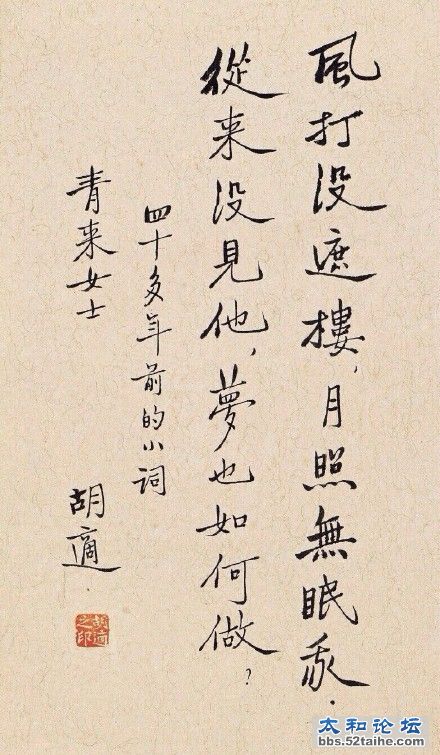 風打没遮樓，月照無眠我．
從来没見他，夢也如何做？
四十多年前的小词
青来女士
胡適．
胡適之印
太和论坛
bbs.52taihe.com